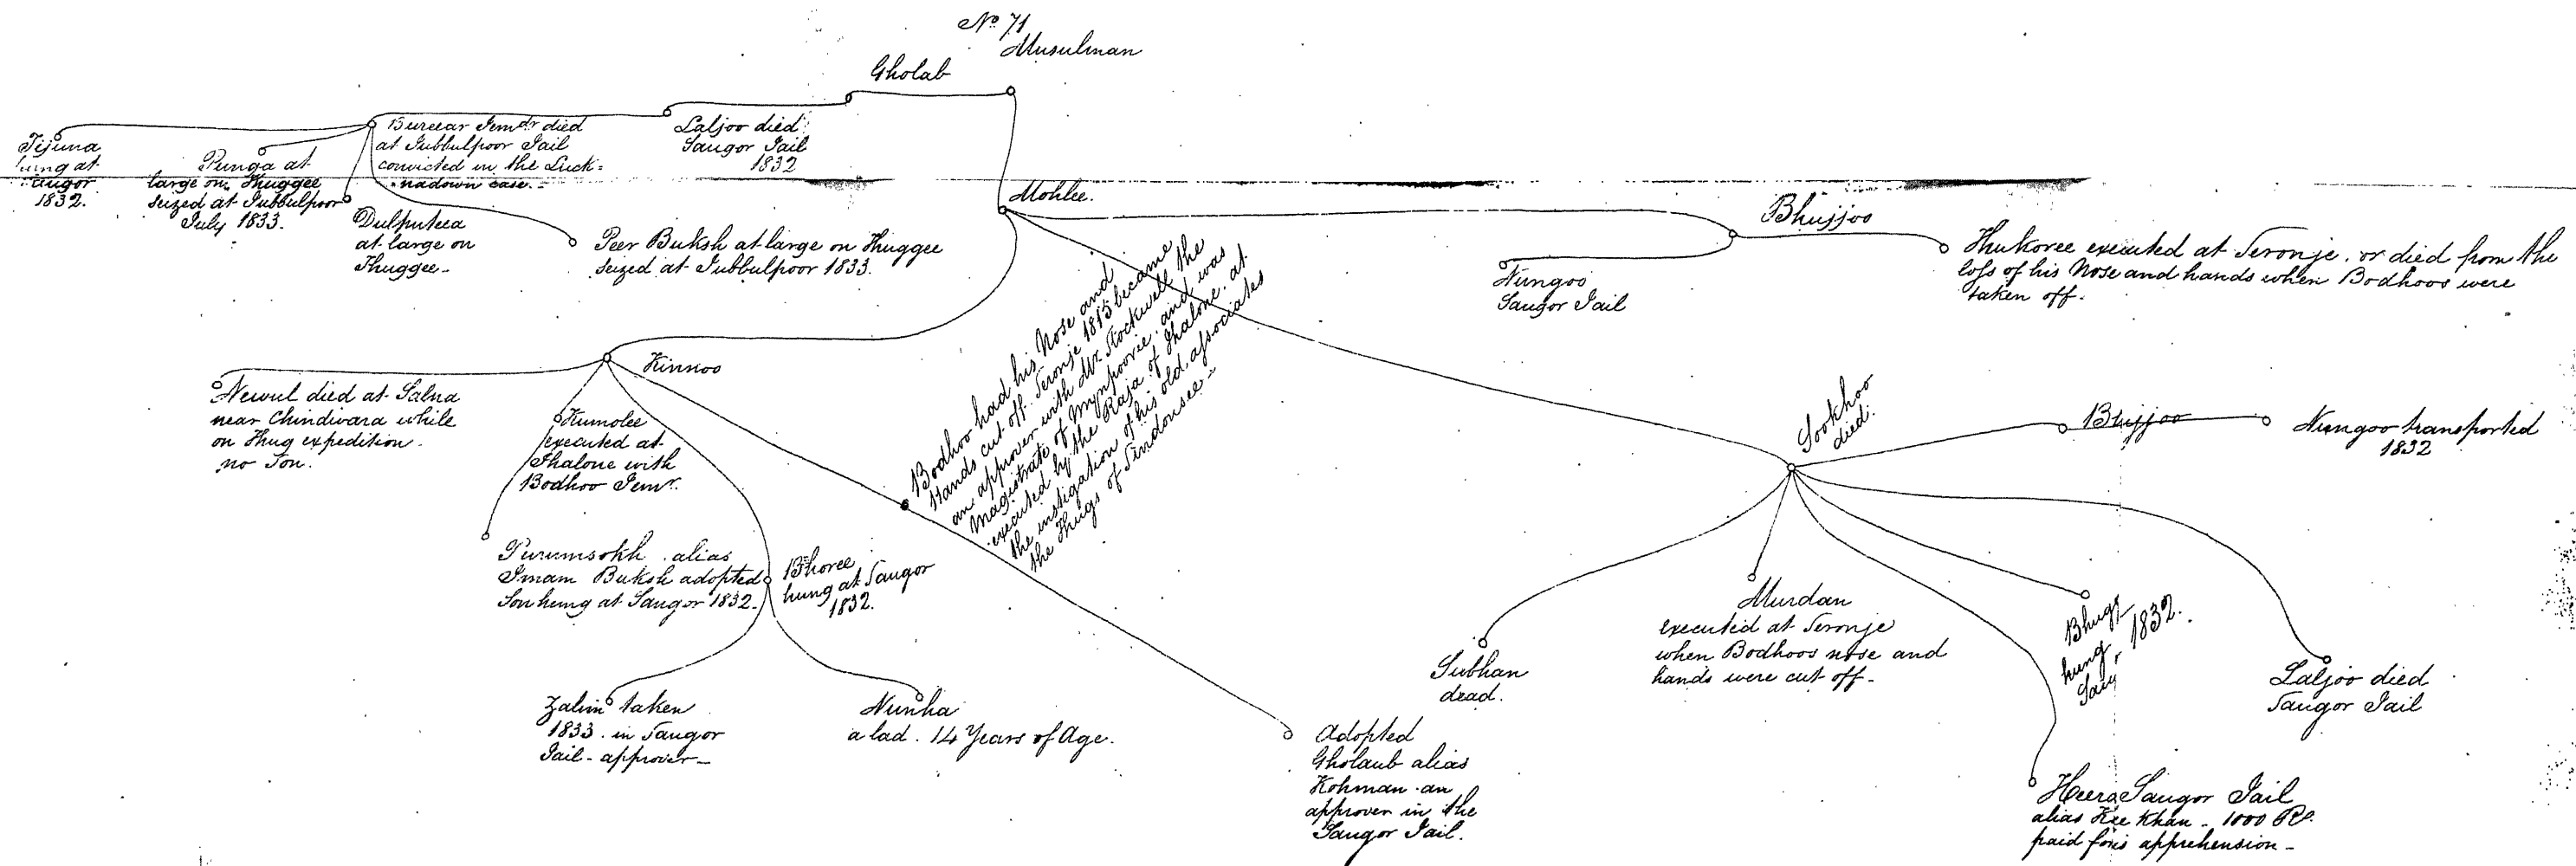 No. 71
Musulman
Gholab
Tejuna
hung at
Saugor
1832.
Punga at
large on Thuggee
seized at Jubbulpoor
July 1833.
Bureear Jemdr died
at Jubbulpoor Jail
convicted in the Luck=
nadown case.-
Laljoo died
Saugor Jail
1832
Dulputeea
at large on
Thuggee-
Peer Buksh at large on Thuggee
seized at Jubbulpoor 1833.
Mohlee.
Bhujjoo
Nungoo
Saugor Jail
Thukoree executed at Seronje, or died from the
loss of his Nose and hands when Bodhoos were
taken off.
Kinnoo
Newul died at Salna
near Chindwara while
on Thug expedition.
no Son.
Kumolee
executed at
Jhalone with
Bodhoo Jemr.
Purumsokh alias
Imam Buksh adopted
Son hung at Saugor 1832.
Bhoree
hung at Saugor
1832.
Zalim taken
1833. in Saugor
Jail - approver-
Nunha
a lad. 14 Years of Age.
Bodhoo had his Nose and
Hands cut off Seronje 1813 became
an approver with Mr. Stockwell the
Magistrate of Mynpoorie. and was
executed by the Raja of Jhalone. at
the instigation of his old associates
the Thugs of Sindousee-
Adopted
Gholaub alias
Kohman an
approver in the
Saugor Jail.
Sookhoo
died.
Bhujjoo
Nungoo transported
1832
Subhan
dead.
Murdan
executed at Seronje
when Bodhoos nose and
hands were cut off-
hung
1832.
Laljoo died
Saugor Jail
Heera Saugor Jail
alias Khan - 1000 Rs.
paid apprehension-